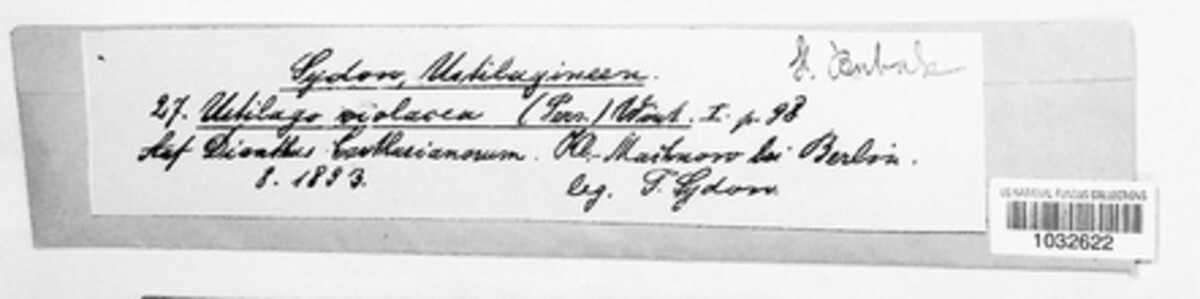 Sydow, Ustilagineen.
27. Ustilago violacea (Pers.) Wint. I. p. 98
Auf Dianthus Carthusianorum. Kl.-Machnow bei Berlin.
8. 1893. leg. P. Sydow.
US NATIONAL FUNGUS COLLECTIONS
1032622